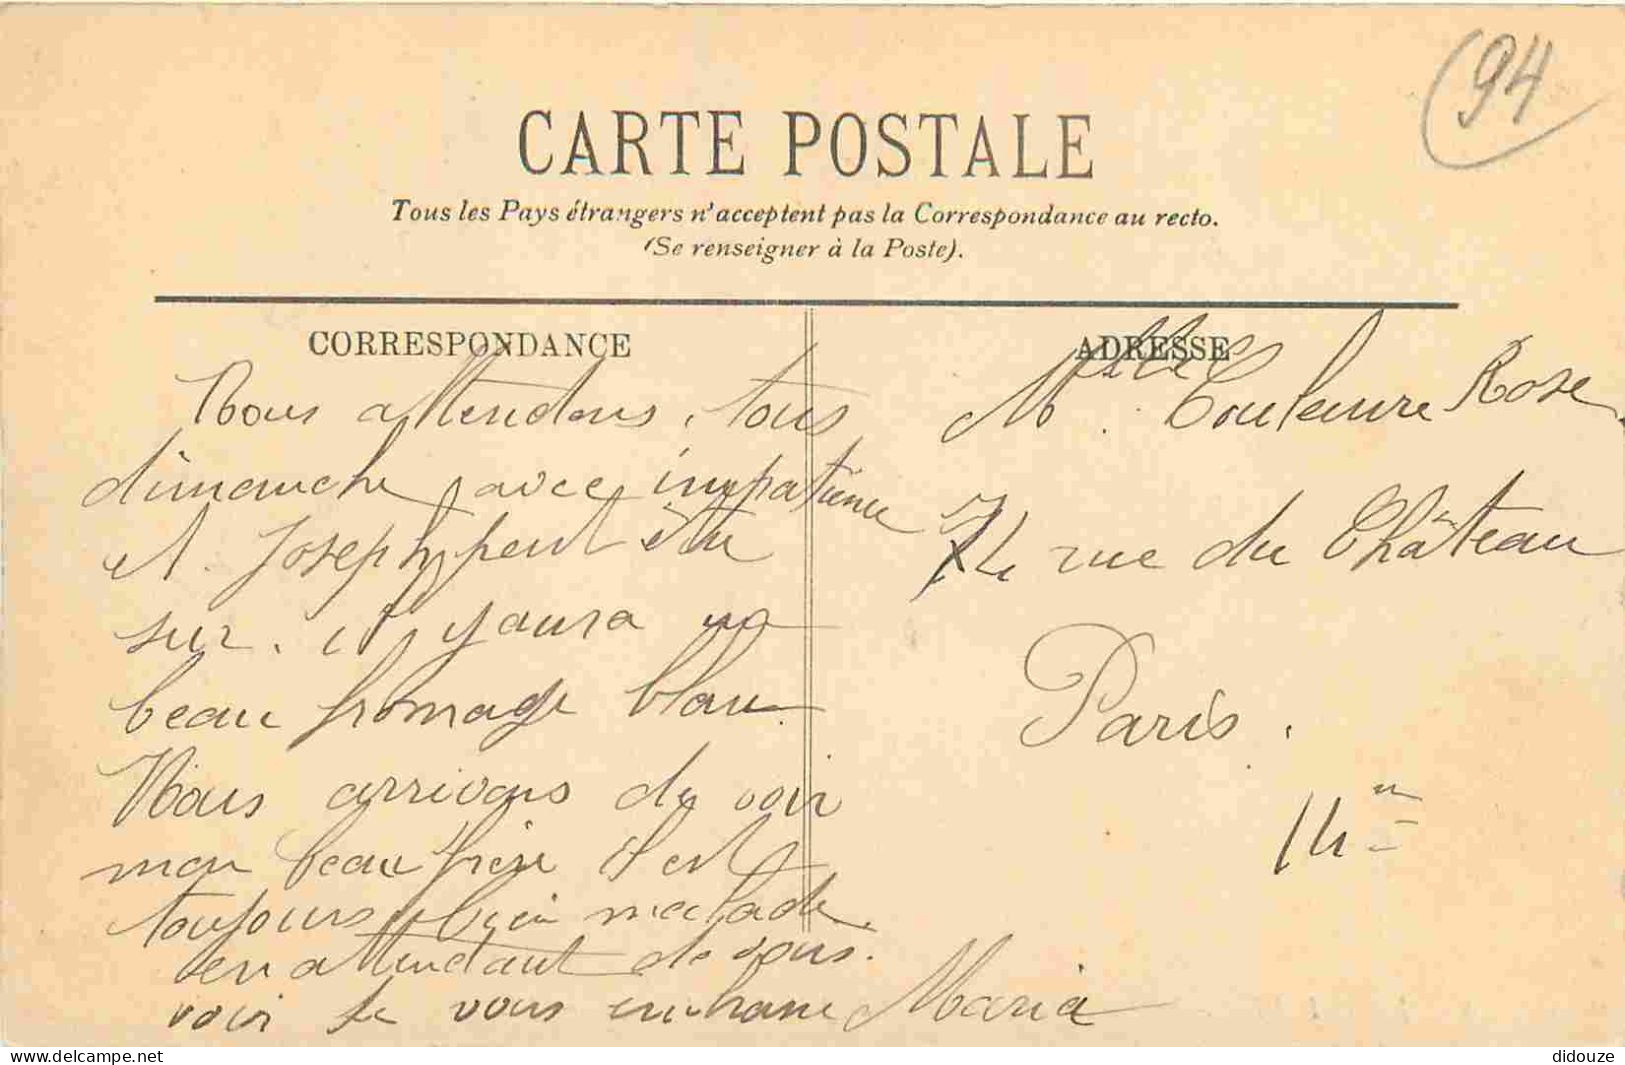 (94
CARTE POSTALE
Tous les Pays étrangers n'acceptent pas la Correspondance au recto.
(Se renseigner à la Poste).
CORRESPONDANCE
Nous attendons, tous
dimanche avec impatience
et Joseph peut être
sur. il y aura un
beau fromage blanc
Nous arrivons de voir
mon beau frère il est
toujours bien malade.
en attendant de vous.
voir je vous embrasse Maria
ADRESSE
Mlle. Couleuvre Rose
74 rue du Château
Paris.
14e
delcampe.net
didouze